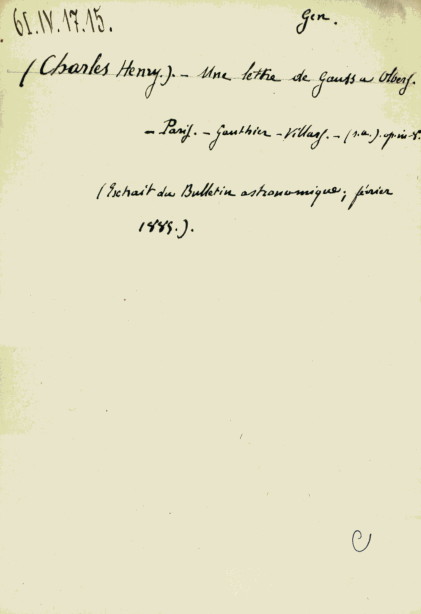 61.IV.17.15.
Gen.
(Charles Henry.). – Une lettre de Gauss a Olbers.
– Paris. – Gauthier-Villars. – (s.a.). op. in-8.
(Extrait du Bulletin astronomique; février
1885.).